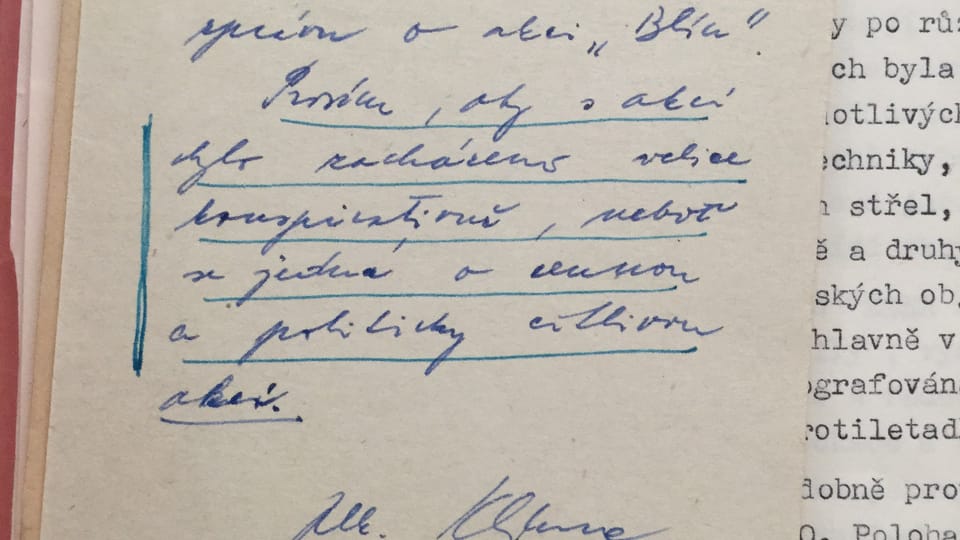 zprávu o akci „Blín".
Prosím, aby s akcí
bylo zacházeno velice
konspirativně, neboť
se jedná o cennou
a politicky citlivou
akci.
y po růz
ch byla
notlivých
echniky,
n střel,
ě a druhy
ských ob
hlavně v
ografována
rotiletadl
dobně pro
O. Poloha